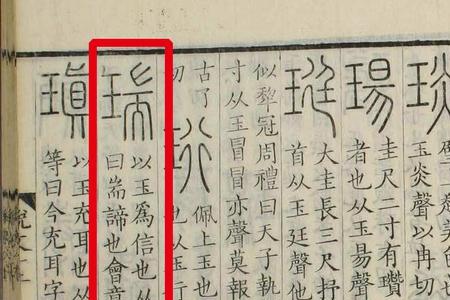 琰
玉炎聲以冉切
瑒圭尺二寸有瓚
者也从玉昜聲
珽大圭長三尺抒
首从玉廷聲他
似犂冠周禮曰天子執
寸从玉冒冒亦聲莫報
古了
切
珩佩上玉也
也从玉行
瑞以玉爲信也从
曰耑諦也會意
瑱以玉充耳也从
等曰今充耳字
說文